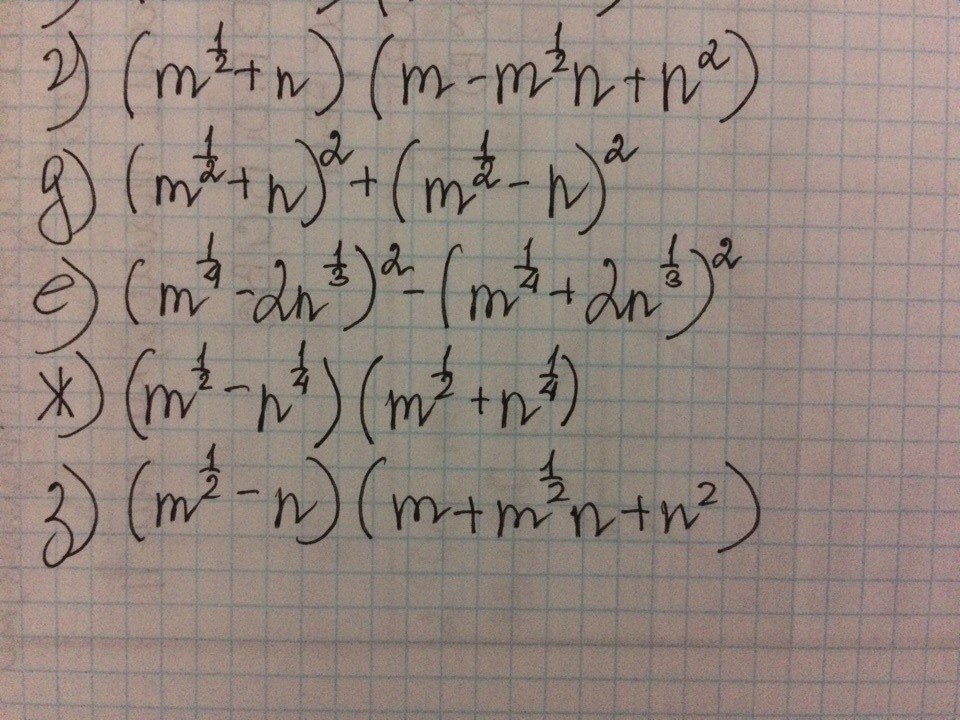 г) (m^{1/2} + n) (m - m^{1/2}n + n^2)
д) (m^{1/2} + n)^2 + (m^{1/2} - n)^2
е) (m^{1/4} - 2n^{1/3})^2 - (m^{1/4} + 2n^{1/3})^2
ж) (m^{1/2} - n^{1/4}) (m^{1/2} + n^{1/4})
з) (m^{1/2} - n) (m + m^{1/2}n + n^2)